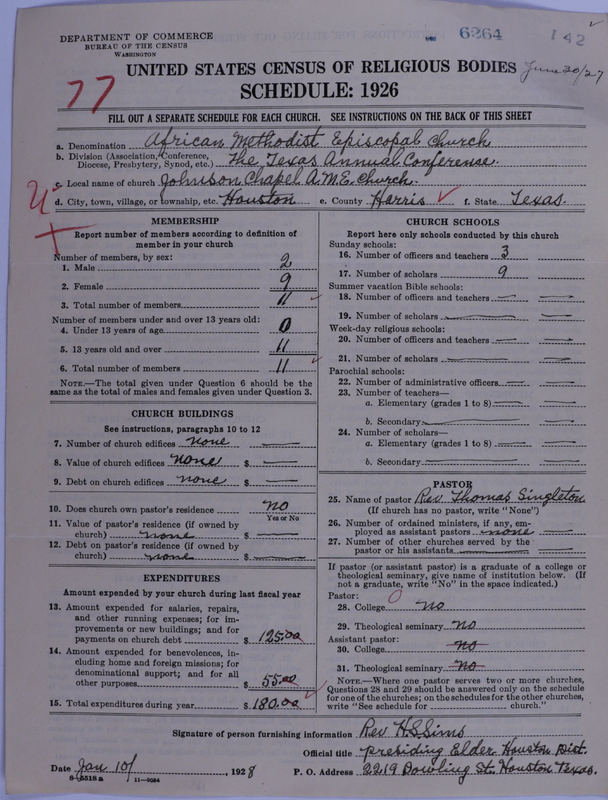 DEPARTMENT OF COMMERCE
BUREAU OF THE CENSUS
WASHINGTON
6264
142
June 30/27
77
UNITED STATES CENSUS OF RELIGIOUS BODIES
SCHEDULE: 1926
FILL OUT A SEPARATE SCHEDULE FOR EACH CHURCH. SEE INSTRUCTIONS ON THE BACK OF THIS SHEET
a. Denomination African Methodist Episcopal Church
b. Division (Association, Conference, Diocese, Presbytery, Synod, etc.) The Texas Annual Conference.
c. Local name of church Johnson Chapel A.M.E. Church.
d. City, town, village, or township, etc. Houston e. County Harris f. State Texas.
MEMBERSHIP
Report number of members according to definition of
member in your church
Number of members, by sex:
1. Male 2
2. Female 9
3. Total number of members 11
Number of members under and over 13 years old:
4. Under 13 years of age 0
5. 13 years old and over 11
6. Total number of members 11
NOTE.—The total given under Question 6 should be the
same as the total of males and females given under Question 3.
CHURCH BUILDINGS
See instructions, paragraphs 10 to 12
7. Number of church edifices none
8. Value of church edifices none $
9. Debt on church edifices none $
10. Does church own pastor's residence? no
Yes or No
11. Value of pastor's residence (if owned by
church) none $
12. Debt on pastor's residence (if owned by
church) none $
EXPENDITURES
Amount expended by your church during last fiscal year
13. Amount expended for salaries, repairs,
and other running expenses; for im-
provements or new buildings; and for
payments on church debt $ 125.00
14. Amount expended for benevolences, in-
cluding home and foreign missions; for
denominational support; and for all
other purposes $ 55.00
15. Total expenditures during year $ 180.00
CHURCH SCHOOLS
Report here only schools conducted by this church
Sunday schools:
16. Number of officers and teachers 3
17. Number of scholars 9
Summer vacation Bible schools:
18. Number of officers and teachers
19. Number of scholars
Week-day religious schools:
20. Number of officers and teachers
21. Number of scholars
Parochial schools:
22. Number of administrative officers
23. Number of teachers—
a. Elementary (grades 1 to 8)
b. Secondary
24. Number of scholars—
a. Elementary (grades 1 to 8)
b. Secondary
PASTOR
25. Name of pastor Rev Thomas Singleton
(If church has no pastor, write "None")
26. Number of ordained ministers, if any, em-
ployed as assistant pastors none
27. Number of other churches served by the
pastor or his assistants
If pastor (or assistant pastor) is a graduate of a college or
theological seminary, give name of institution below. (If
not a graduate, write "No" in the space indicated.)
Pastor: 0
28. College no
29. Theological seminary no
Assistant pastor:
30. College no
31. Theological seminary no
NOTE.—Where one pastor serves two or more churches,
Questions 28 and 29 should be answered only on the schedule
for one of the churches; on the schedules for the other churches,
write "See schedule for church."
Signature of person furnishing information Rev H.S. Sims
Official title Presiding Elder Houston Dist.
Date Jan 10/, 1928 P. O. Address 2219 Dowling St. Houston Texas.
8-5518a 11-9084